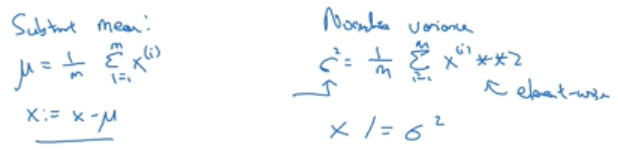 Subtract mean:
μ = 1/m Σ_{i=1}^{m} x^{(i)}
x := x - μ
Normalize variance
σ² = 1/m Σ_{i=1}^{m} x^{(i)} ** 2
element-wise
x /= σ²